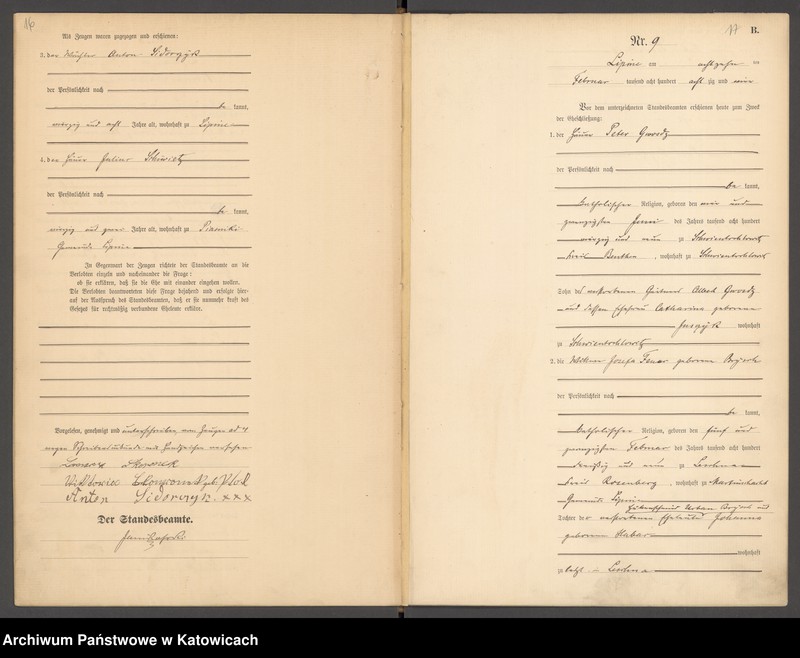 16
Als Zeugen waren zugezogen und erschienen:
3. der Wächter Anton Sidorczyk
der Persönlichkeit nach
be kannt,
vierzig und acht Jahre alt, wohnhaft zu Lipine
4. der Häuer Julius
der Persönlichkeit nach
be kannt,
vierzig und zwei Jahre alt, wohnhaft zu Piasniki
Gemeinde Lipine
In Gegenwart der Zeugen richtete der Standesbeamte an die
Verlobten einzeln und nacheinander die Frage:
ob sie erklären, daß sie die Ehe mit einander eingehen wollen.
Die Verlobten beantworteten diese Frage bejahend und erfolgte hier-
auf der Ausspruch des Standesbeamten, daß er sie nunmehr kraft des
Gesetzes für rechtmäßig verbundene Eheleute erkläre.
Vorgelesen, genehmigt und unterschrieben vom Zeugen ad 4
wegen Schreibensunkunde mit Handzeichen versehen
Skowronek
Wiktowie
Anton Sidorczyk. xxx
Der Standesbeamte.
17 B.
Nr. 9
Lipine am achtzehn ten
Februar tausend acht hundert acht zig und vier
Vor dem unterzeichneten Standesbeamten erschienen heute zum Zweck
der Eheschließung:
1. der Häuer Peter Gwozdz
der Persönlichkeit nach
be kannt,
katholischer Religion, geboren den vier und
zwanzigsten Juni des Jahres tausend acht hundert
vierzig und neun zu Schwientochlowitz
Kreis Beuthen, wohnhaft zu Schwientochlowitz
Sohn des verstorbenen Gärtner Albert Gwozdz
und dessen Ehefrau Catharina geborene
wohnhaft
zu Schwientochlowitz
2. die Wittwe Josefa geborene
der Persönlichkeit nach
be kannt,
katholischer Religion, geboren den fünf und
zwanzigsten Februar des Jahres tausend acht hundert
dreißig und neun zu
Kreis Rosenberg, wohnhaft zu Martinschacht
Gemeinde Lipine
Urban
Tochter der verstorbenen Eheleute Johanna
geborene
wohnhaft
zu letzt in
Archiwum Państwowe w Katowicach